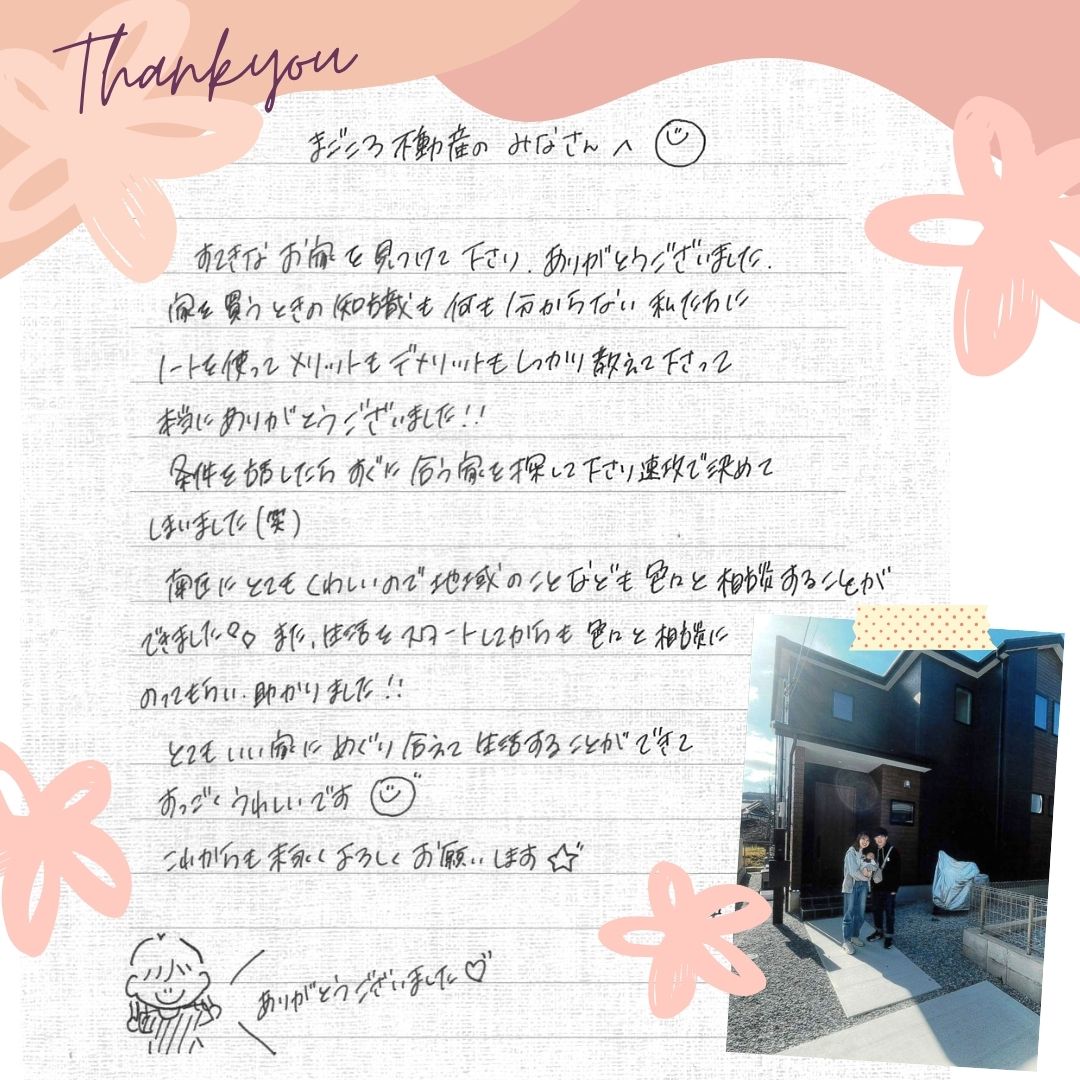 Thankyou
まごころ不動産の みなさんへ
すてきな お家を 見つけて 下さり、ありがとうございました。
家を 買うときの 知識も 何も 分からない 私たちに
ノートを使って メリットも デメリットも しっかり 教えて 下さって
本当に ありがとうございました!!
条件を 話したら すぐに 合う 家を 探して 下さり 速攻で 決めて
しまいました(笑)
南区に とても くわしいので 地域の ことなども 色々と 相談することが
できました♡♡ また、生活を スタートしてからも 色々と 相談に
のってもらい、助かりました!!
とても いい 家に めぐり 合えて 生活することが できて
すっごく うれしいです
これからも 末永く よろしく お願いします☆
ありがとうございました♡